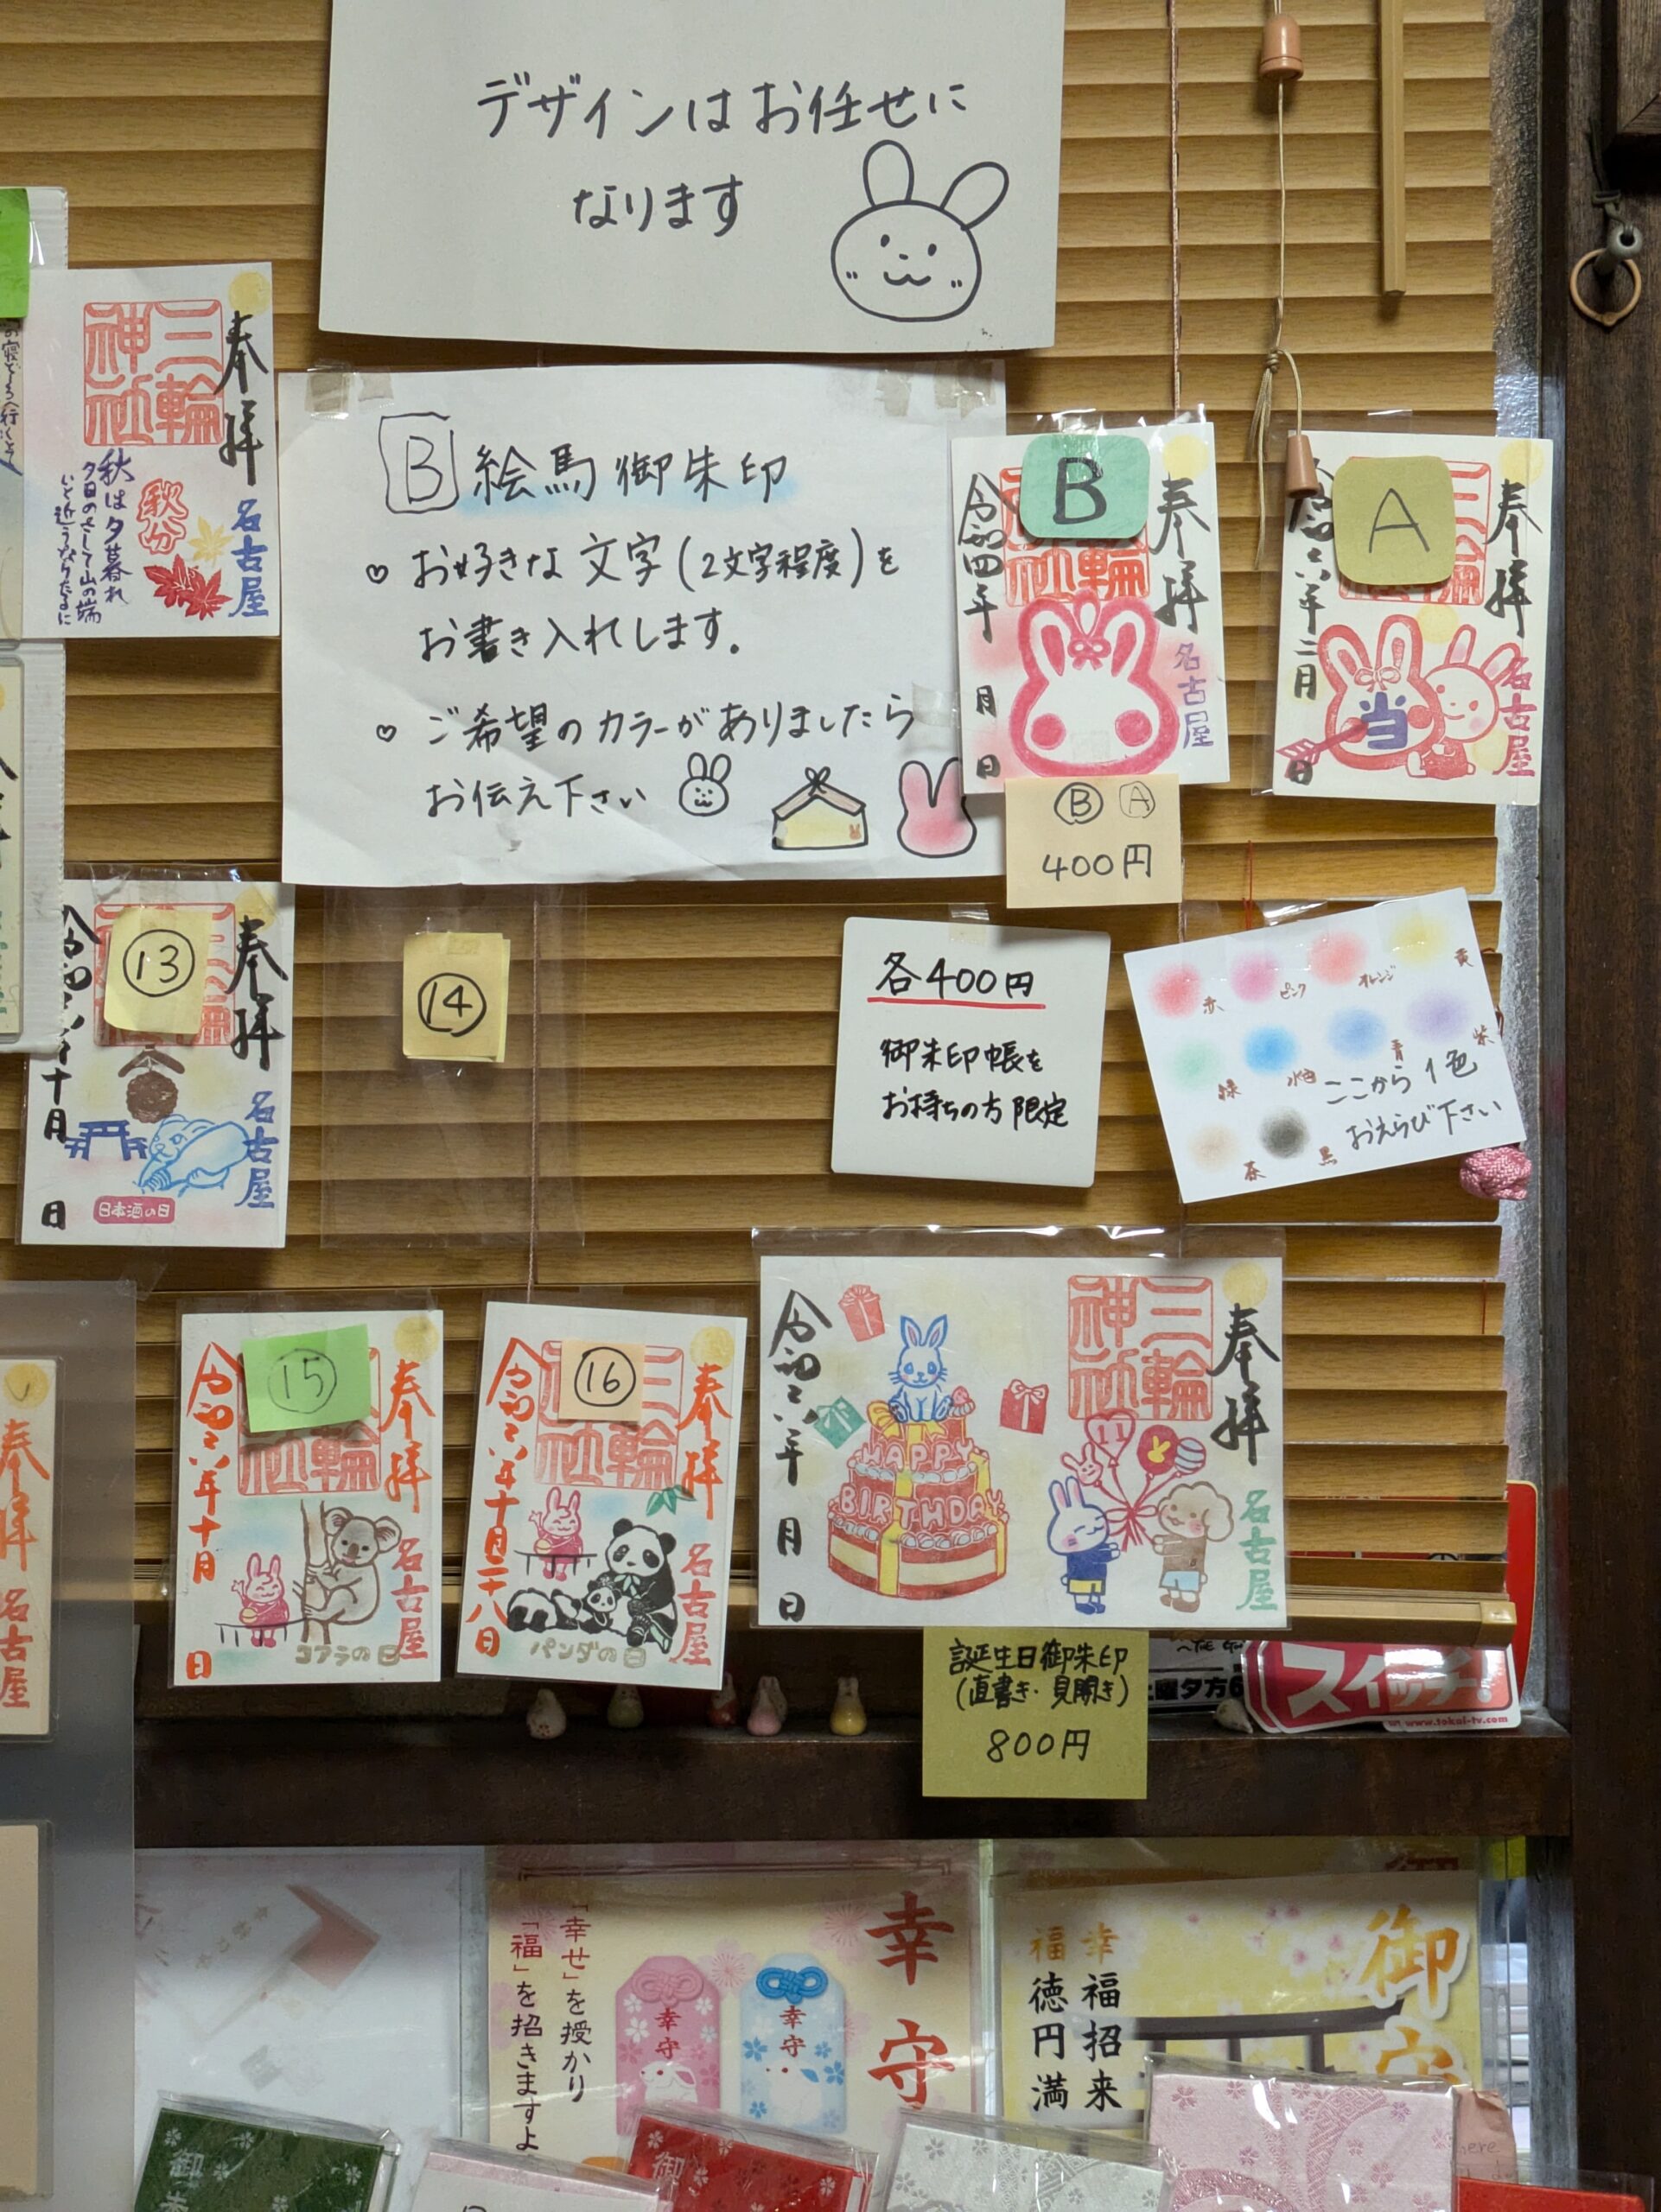 デザインはお任せに
なります
奉拝
三輪
神社
名古屋
秋分
秋は夕暮れ
夕日のさして山の端
いと近うなりたるに
B 絵馬御朱印
♡ お好きな文字(2文字程度)を
お書き入れします。
♡ ご希望のカラーがありましたら
お伝え下さい
B
奉拝
輪
社
名古屋
令和四年 月 日
A
奉拝
当
名古屋
六年二月
日
Ⓑ Ⓐ
400円
⑬
奉拝
名古屋
令和六年十月 日
日本酒の日
⑭
各400円
御朱印帳を
お持ちの方限定
赤
ピンク
オレンジ
黄
緑
水色
青
紫
茶
黒
ここから1色
おえらび下さい
⑮
奉拝
輪
社
名古屋
令和六年十月 日
コアラの日
⑯
奉拝
三輪
社
名古屋
令和六年十月二十八日
パンダの日
奉拝
三輪
神社
名古屋
令和六年 月 日
HAPPY
BIRTHDAY
11
誕生日御朱印
(直書き・見開き)
800円
土曜夕方6
スイッチ!
www.tokai-tv.com
奉拝
名古屋
幸守
「幸せ」を授かり
「福」を招きますよ
幸守
幸守
御守
幸福招来
福徳円満
御
御
here